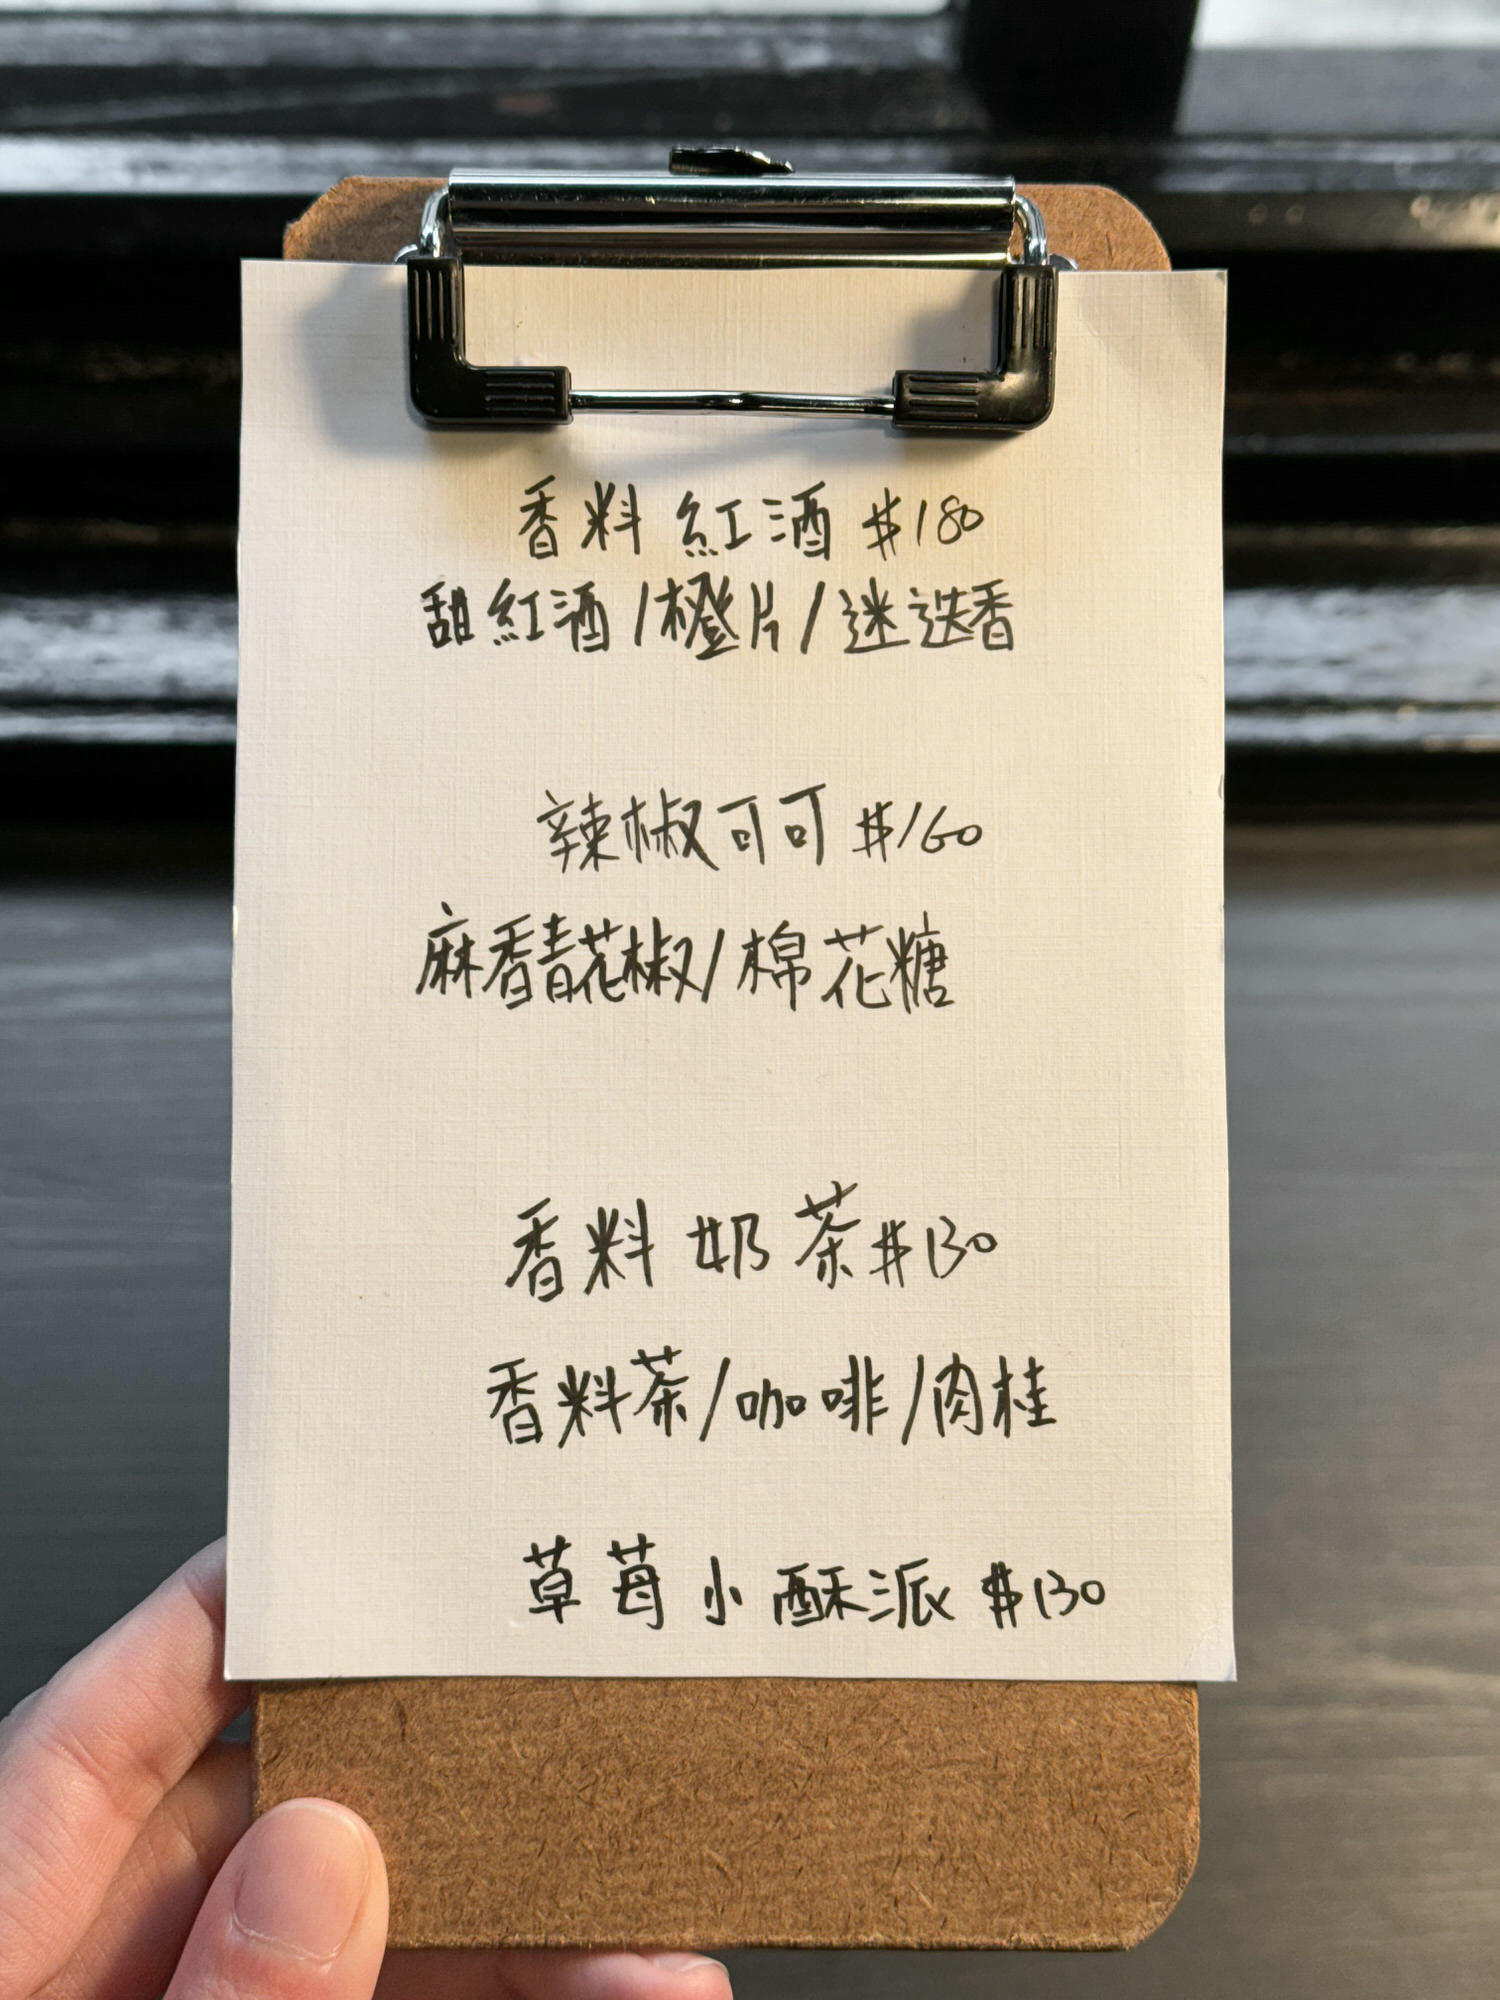 香料紅酒 $180
甜紅酒/橙片/迷迭香
辣椒可可 $160
麻香青花椒/棉花糖
香料奶茶 $130
香料茶/咖啡/肉桂
草莓小酥派 $130